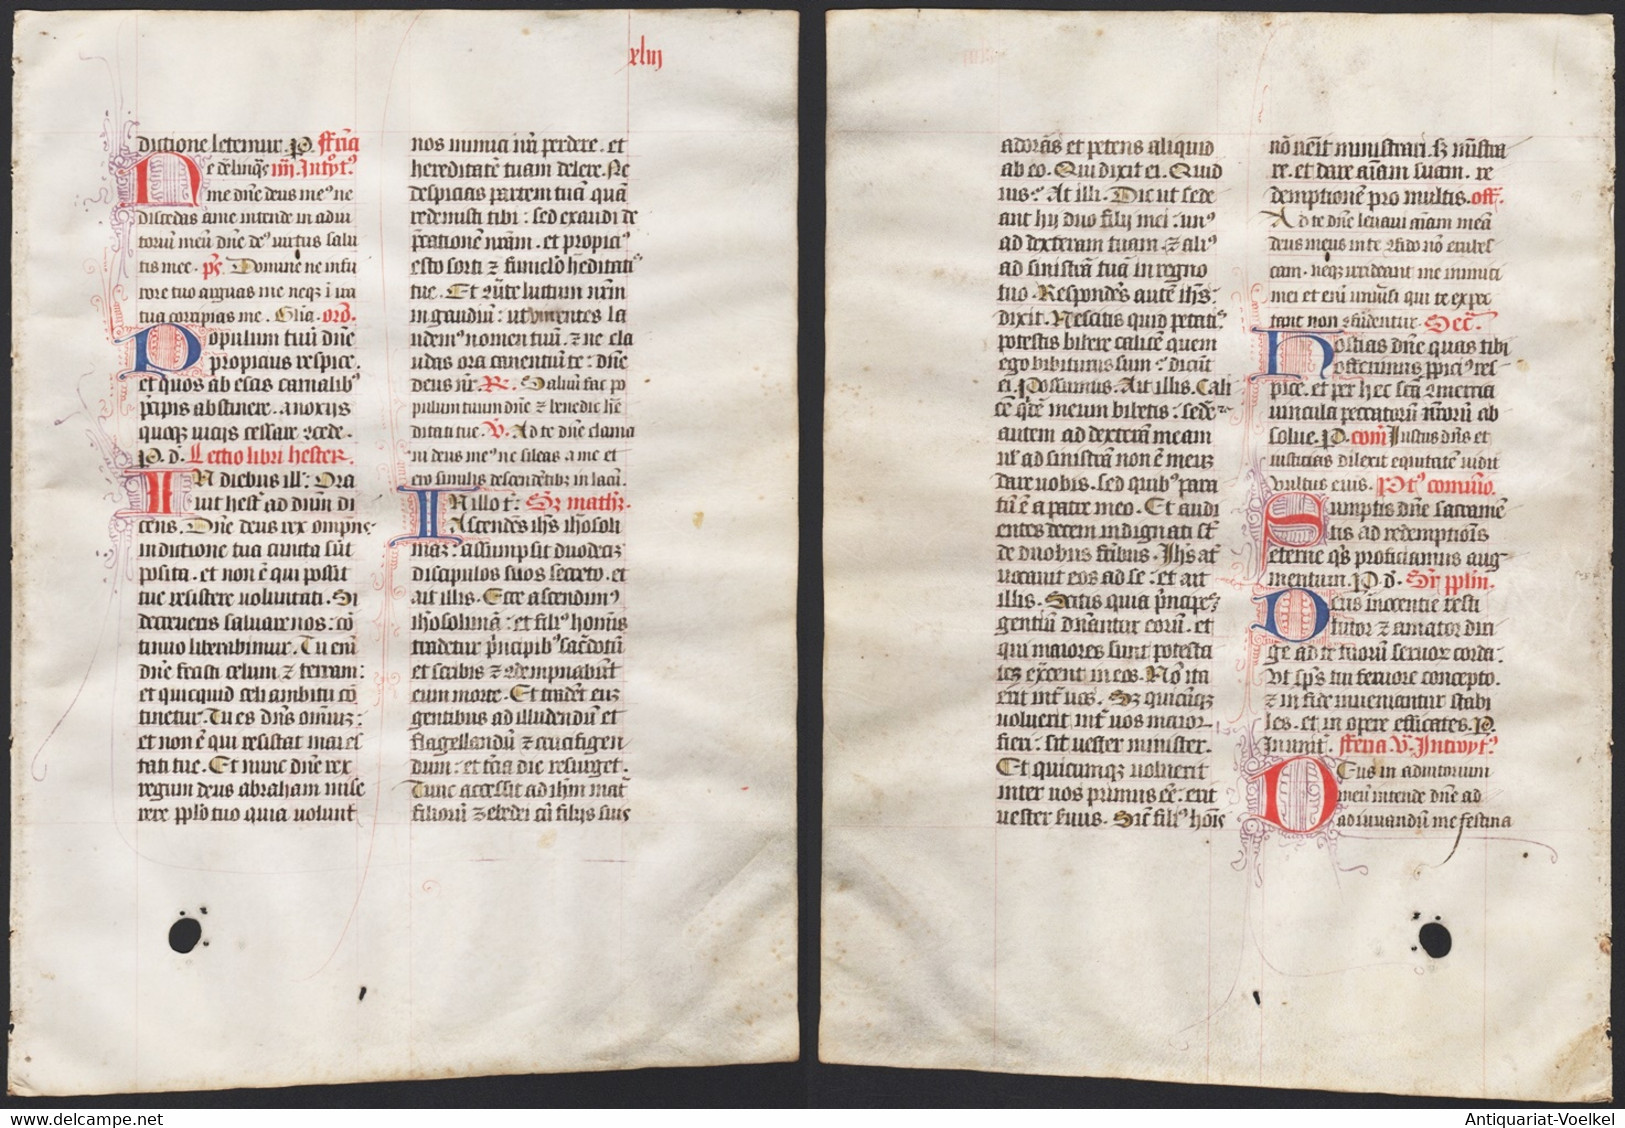 xliij
dictione letemur. P. fferia
Ne derelinqas iiij. Introitus
me dne deus meus ne
discedas a me intende in adiu
toriu meu dne deus virtus salu
tis mee. ps. Domine ne in fu
rore tuo arguas me neqz in ira
tua corripias me. Glia. oro.
Populum tuu dne
propicius respice.
et quos ab escis carnalibus
precipis abstinere. a noxijs
quoqz vicijs cessare concede.
P. d. Lectio libri hester.
IN diebus ill: Ora
uit hester ad dnum di
cens. Dne deus rex omps
in dictione tua cuncta sut
posita. et non e qui possit
tue resistere voluntati. Si
decreueris saluare nos: co
tinuo liberabimur. Tu eni
dne fecisti celum z terram:
et quicquid celi ambitu co
tinetur. Tu es dns omniuz:
et non e qui resistat maies
tati tue. Et nunc dne rex
regum deus abraham mise
rere pplo tuo quia volunt
nos inimici nri perdere. et
hereditate tuam delere. Ne
despicias partem tua qua
redemisti tibi: sed exaudi de
precatione nram. et propicius
esto sorti z funiclo hereditatis
tue. Et conuerte luctum nrm
in gaudiu: ut viuentes la
udem nomen tuu: z ne cla
udas ora canentiu te: dne
deus nr. R. Saluu fac po
pulum tuum dne z benedic here
ditati tue. V. Ad te dne clama
ui deus meus ne sileas a me et
ero similis descendetibz in lacu.
IN illo t: Sz math.
Ascendes ihs iherosoli
maz: assumpsit duodeciz
discipulos suos secreto. et
ait illis. Ecce ascendimus
iherosolima: et filius hominis
tradetur principibus sacerdotu
et scribis z condempnabut
eum morte. Et tradet euz
gentibus ad illudendu et
flagellandu z crucifigen
dum: et tercia die resurget.
Tunc accessit ad ihm mater
filioru zebedei cu filijs suis
adoras et petens aliquid
ab eo. Qui dixit ei. Quid
uis? At illi. Dic ut sede
ant hij duo filij mei: unus
ad dexteram tuam. z alius
ad sinistra tua in regno
tuo. Respondes aute ihs:
dixit. Nescitis quid petatis.
potestis bibere calice quem
ego bibiturus sum? dicut
ei. Possumus. Ait illis. Cali
ce quidem meum bibetis: sedere
autem ad dexteram meam
uel ad sinistra non e meuz
dare vobis. sed quibus para
tu e a patre meo. Et audi
entes decem indignati sut
de duobus fribus. Ihs at
vocauit eos ad se: et ait
illis. Scitis quia principez
gentiu dnantur eoru. et
qui maiores sunt potesta
tez exercent in eos. No ita
erit inter uos. Sz quicuqz
uoluerit inter uos maior
fieri: sit uester minister.
Et quicumqz uoluerit
inter uos primus ee: erit
uester seruus. Sic filius hois
no uenit ministrari. sz ministra
re. et dare aiam suam. re
demptionem pro multis. off.
Ad te dne leuaui aiam mea
deus meus in te confido no erubes
cam. neqz irrideant me inimici
mei et eni uniuersi qui te expec
tant non confudentur. Secr.
Hostias dne quas tibi
offerimus ppicius res
pice. et per hec sca comercia
vincula peccatoru nroru ab
solue. P. com Iustus dns et
iusticias dilexit equitate uidit
vultus eius. Post comunio.
Sumptis dne sacrame
tis ad redemptiois
eterne qs proficiamus aug
mentum. P. d. Sup pplm.
Deus inocentie resti
tutor z amator diri
ge ad te tuoru seruor corda:
Vt sps tui feruore concepto.
z in fide inueniantur stabi
les. et in opere efficaces. P.
In unit. fferia V. Introitus.
Deus in adiutorium
meu intende dne ad
adiuuandu me festina
Antiquariat-Voelkel